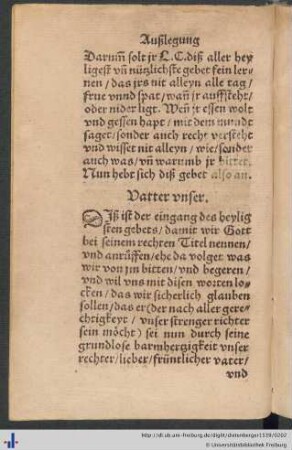 Außlegung
Darum̃ solt jr L.C. diß aller hey
ligest vñ nützlichste gebet fein ler
nen / das jrs nit alleyn alle tag /
frue vnnd spat / wañ jr auffsteht /
oder nider ligt. Weñ jr essen wolt
vnd gessen hapt / mit dem mundt
saget / sonder auch recht versteht
vnd wisset nit alleyn / wie / sonder
auch was / vñ warumb jr bittet.
Nun hebt sich diß gebet also an.
Vatter vnser.
Diß ist der eingang des heylig
sten gebets / damit wir Gott
bei seinem rechten Titel nennen /
vnd anrüffen / ehe da volget was
wir von jm bitten / vnd begeren /
vnd wil vns mit disen worten lo-
cken / das wir sicherlich glauben
sollen / das er (der nach aller gere-
chtigkeyt / vnser strenger richter
sein möcht) sei nun durch seine
grundlose barmhertzigkeit vnser
rechter / lieber / früntlicher vater /
vnd
http://dl.ub.uni-freiburg.de/diglit/dietenberger1539/0202
© Universitätsbibliothek Freiburg